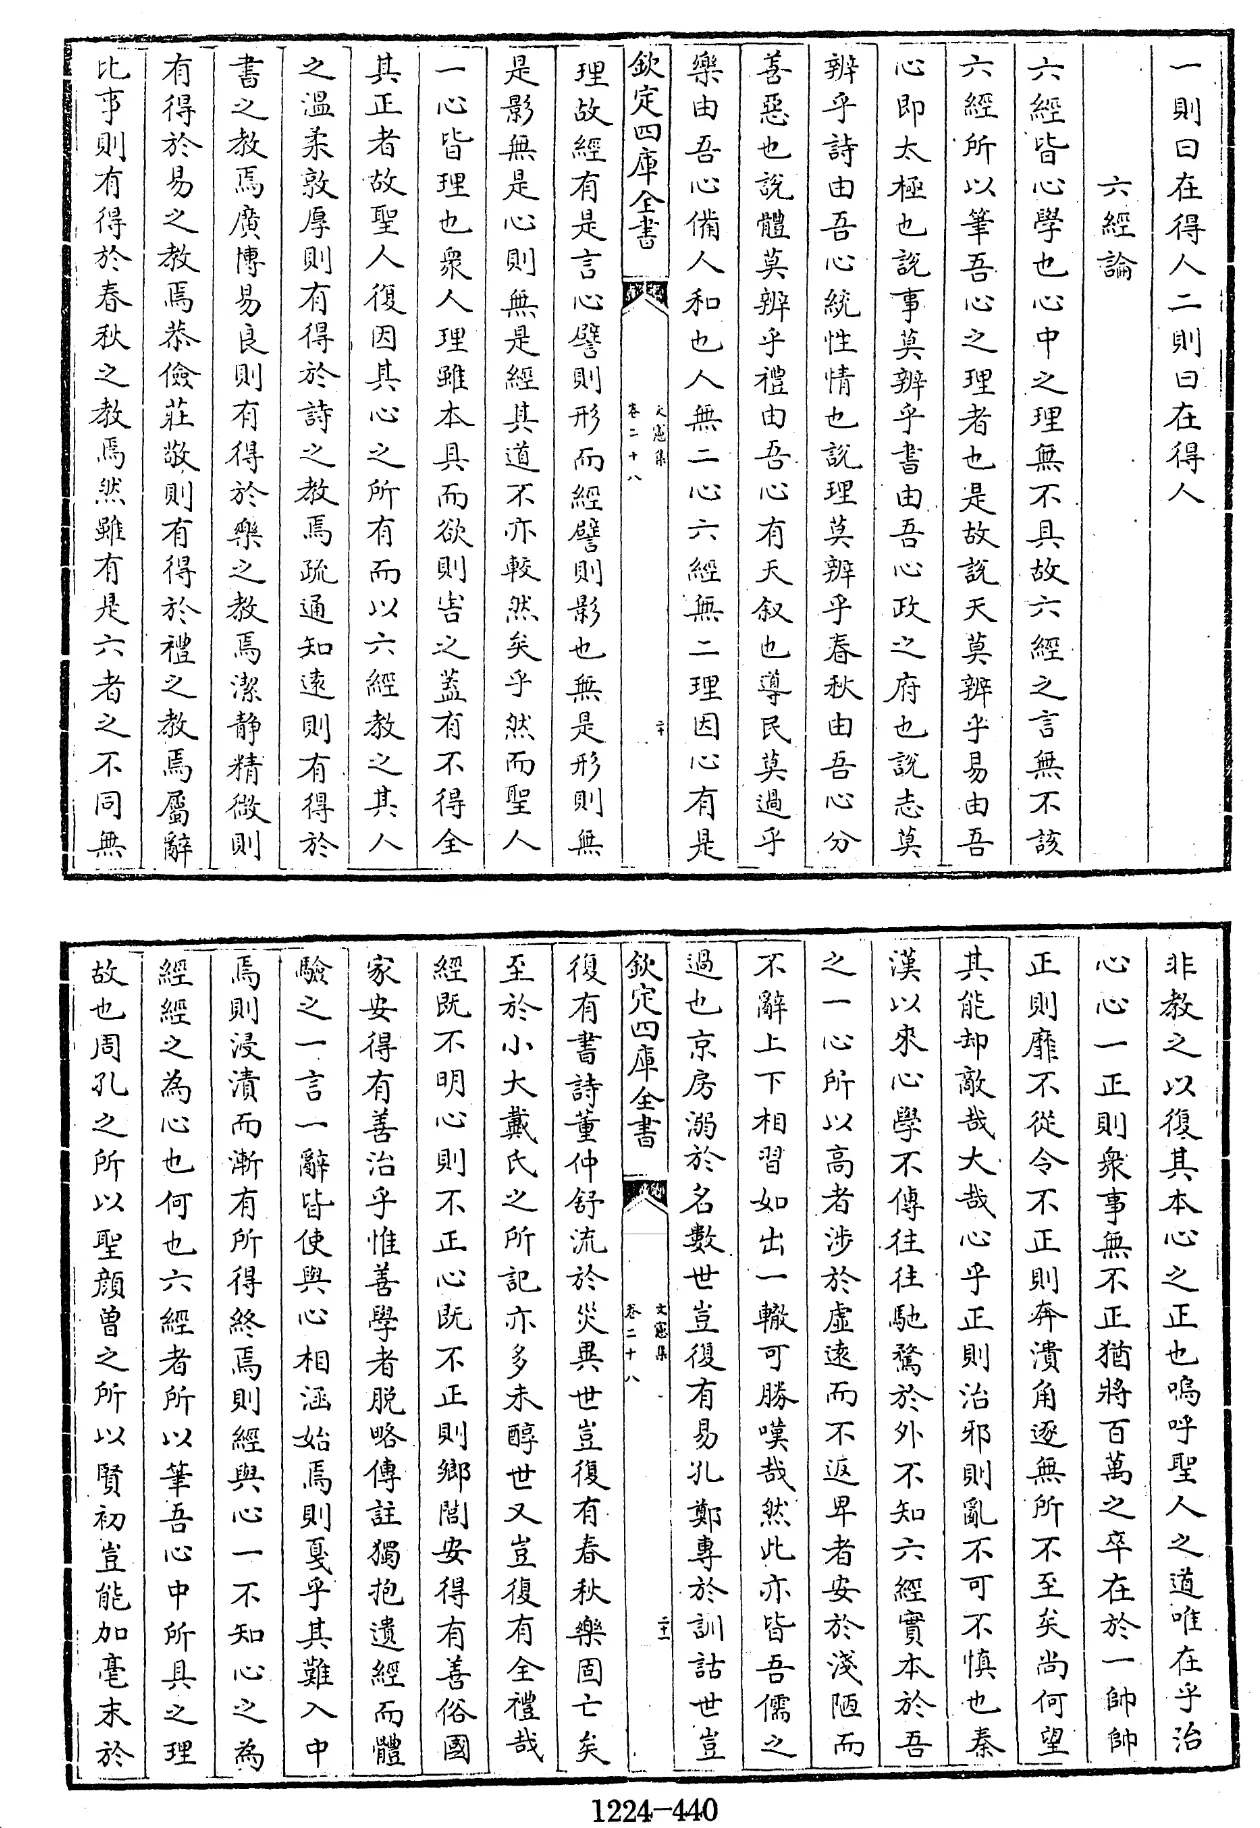 一則曰在得人二則曰在得人
六經論
六經皆心學也心中之理無不具故六經之言無不該
六經所以筆吾心之理者也是故説天莫辨乎易由吾
心即太極也説事莫辨乎書由吾心政之府也説志莫
辨乎詩由吾心統性情也説理莫辨乎春秋由吾心分
善惡也説體莫辨乎禮由吾心有天叙也導民莫過乎
樂由吾心備人和也人無二心六經無二理因心有是
欽定四庫全書
文憲集
卷二十八
二十
理故經有是言心譬則形而經譬則影也無是形則無
是影無是心則無是經其道不亦較然矣乎然而聖人
一心皆理也衆人理雖本具而欲則害之蓋有不得全
其正者故聖人復因其心之所有而以六經教之其人
之溫柔敦厚則有得於詩之教焉疏通知遠則有得於
書之教焉廣博易良則有得於樂之教焉潔静精微則
有得於易之教焉恭儉莊敬則有得於禮之教焉屬辭
比事則有得於春秋之教焉然雖有是六者之不同無
非教之以復其本心之正也嗚呼聖人之道唯在乎治
心心一正則衆事無不正猶將百萬之卒在於一帥帥
正則靡不從令不正則奔潰角逐無所不至矣尚何望
其能却敵哉大哉心乎正則治邪則亂不可不慎也秦
漢以來心學不傳往往馳騖於外不知六經實本於吾
之一心所以高者涉於虚逺而不返卑者安於淺陋而
不辭上下相習如出一轍可勝嘆哉然此亦皆吾儒之
過也京房溺於名數世豈復有易孔鄭專於訓詁世豈
欽定四庫全書
文憲集
卷二十八
二十一
復有書詩董仲舒流於災異世豈復有春秋樂固亡矣
至於小大戴氏之所記亦多未醇世又豈復有全禮哉
經既不明心則不正心既不正則鄉閭安得有善俗國
家安得有善治乎惟善學者脱略傳註獨抱遺經而體
驗之一言一辭皆使與心相涵始焉則戛乎其難入中
焉則浸漬而漸有所得終焉則經與心一不知心之為
經經之為心也何也六經者所以筆吾心中所具之理
故也周孔之所以聖顔曾之所以賢初豈能加毫末於
1224-440